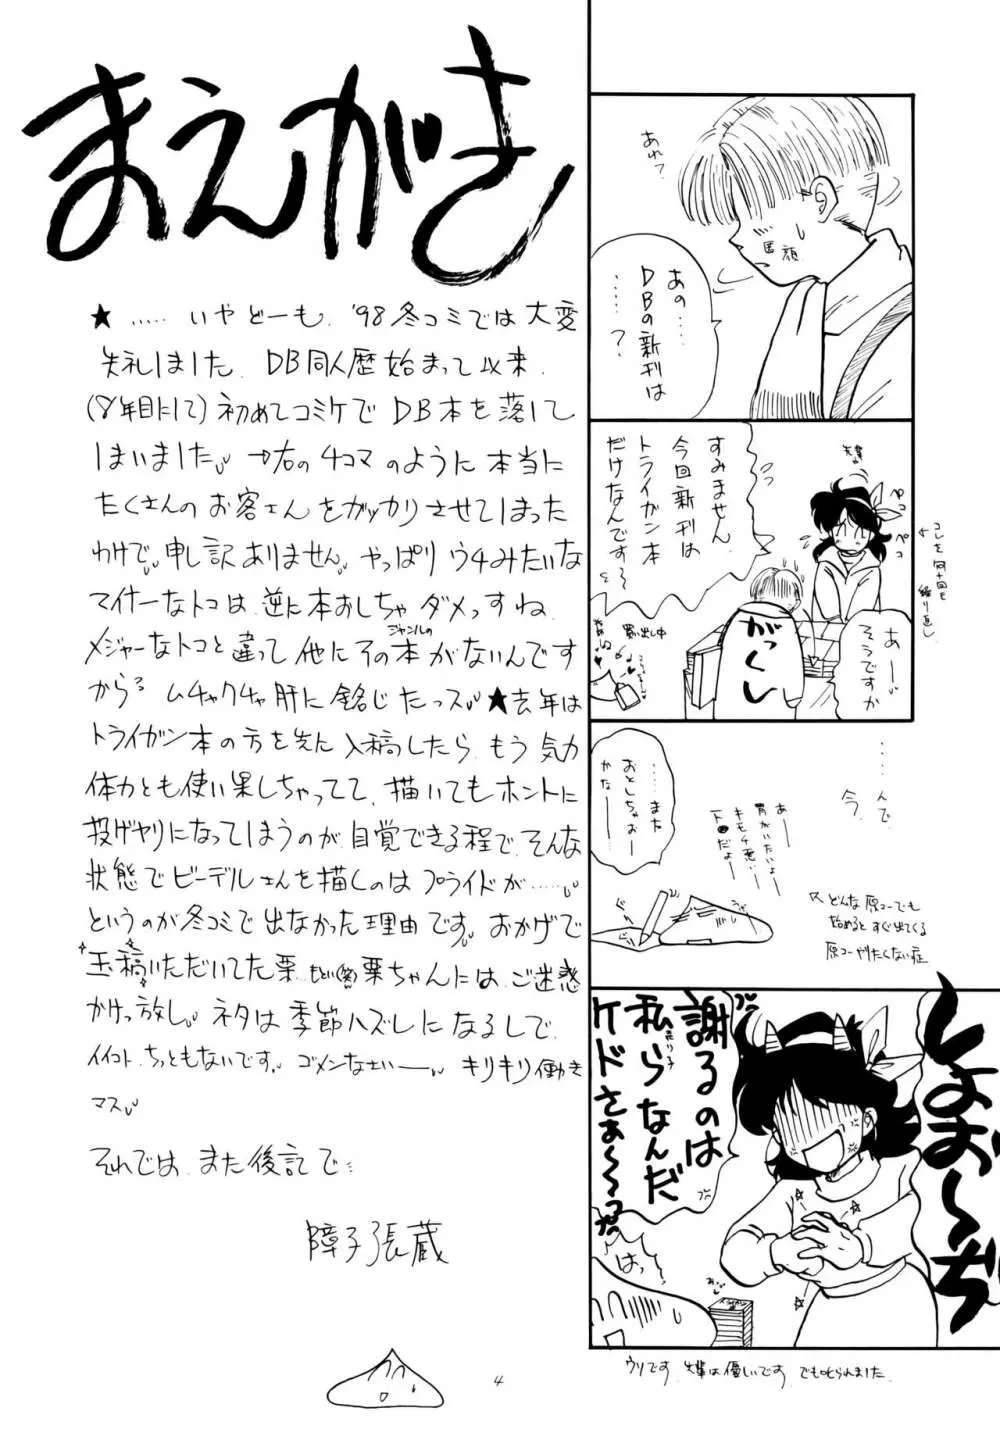 まえがき
★ ..... いやどーも、'98冬コミでは大変
失礼しました。DB同人歴始まって以来、
(8年目にして)初めてコミケでDB本を落して
しまいました →右の4コマのように本当に
たくさんのお客さんをガッカリさせてしまった
わけで、申し訳ありません。やっぱりウチみたいな
マイナーなトコは、逆に本おしちゃダメっすね
メジャーなトコと違って他にそのジャンルの本がないんです
から ムチャクチャ肝に銘じたっス ★去年は
トライガン本の方を先に入稿したら、もう気力
体力とも使い果しちゃってて、描いてもホントに
投げヤリになってしまうのが自覚できる程で、そんな
状態でビーデルさんを描くのはプライドが......
というのが冬コミで出なかった理由です。おかげで
玉稿いただいてた栗 もとい(笑)粟ちゃんには、ご迷惑
かけっ放し。ネタは季節ハズレになるしで、
イイコト、ちっともないです。ゴメンなさいー キリキリ働き
マス
それでは、また後記で
障子張蔵
4
あれ?
馬顔
あの......
DBの新刊は
......?
すみません、
今回新刊は
トライガン本
だけなんです〜
ペコ
ペコ
コレを何十回も
繰り返し
買い出し中
がっくし
あー
そうですか
......
んで
今、
......また
おとしちゃおー
かなー
あー
胃がいたいよー
キモチ悪いー
下●だよー
どんな原コーでも
始めるとすぐ出てくる
原コーやりたくない症
しょお〜ぢ
謝るのは
私ら売り子なんだ
ケドさぁ〜〜っ?
はっ
ウリです。先輩は優しいです。でも叱られました。